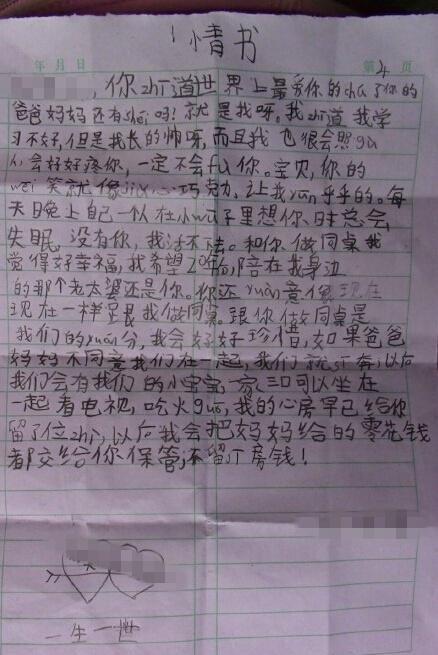 情书
年 月 日 第4页
，你zhī道世界上最爱你的chú了你的
爸爸妈妈还有shéi吗！就是我呀。我zhī道我学
习不好，但是我长的帅呀，而且我也很会照gù
人，会好好疼你，一定不会fù你。宝贝，你的
wēi笑就像巧克力，让我yūn乎乎的。每
天晚上自己一个人在小wū子里想你，时总会
失眠，没有你，我活不下去。和你做同桌我
觉得好幸福，我希望20年后，陪在我身边
的那个老太婆还是你。你还yuàn意像现在
现在一样跟我做同桌。跟你做同桌是
我们的yuán分，我会好好珍惜，如果爸爸
妈妈不同意我们在一起，我们就，以后
我们会有我们的小宝宝，一家三口可以坐在
一起看电视，吃火guō，我的心房早已给你
留了位zhì，以后我会把妈妈给的零花钱
都交给你保管，不留房钱！
一生一世